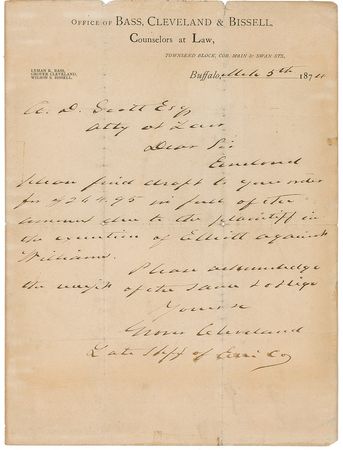 OFFICE OF BASS, CLEVELAND & BISSELL,
Counselors at Law,
TOWNSEND BLOCK, COR. MAIN & SWAN STS.
LYMAN K. BASS,
GROVER CLEVELAND,
WILSON S. BISSELL.
Buffalo, Mch 5th 187
A. D. Scott Esq
Atty at Law
Dear Sir
Enclosed
please find draft to your order
for $264.95 in full of the
amount due to the plaintiff in
the execution of Elliott against
Williams.
Please acknowledge
the receipt of the same & oblige
Yours &c
Grover Cleveland
Late Shff of Erie Co